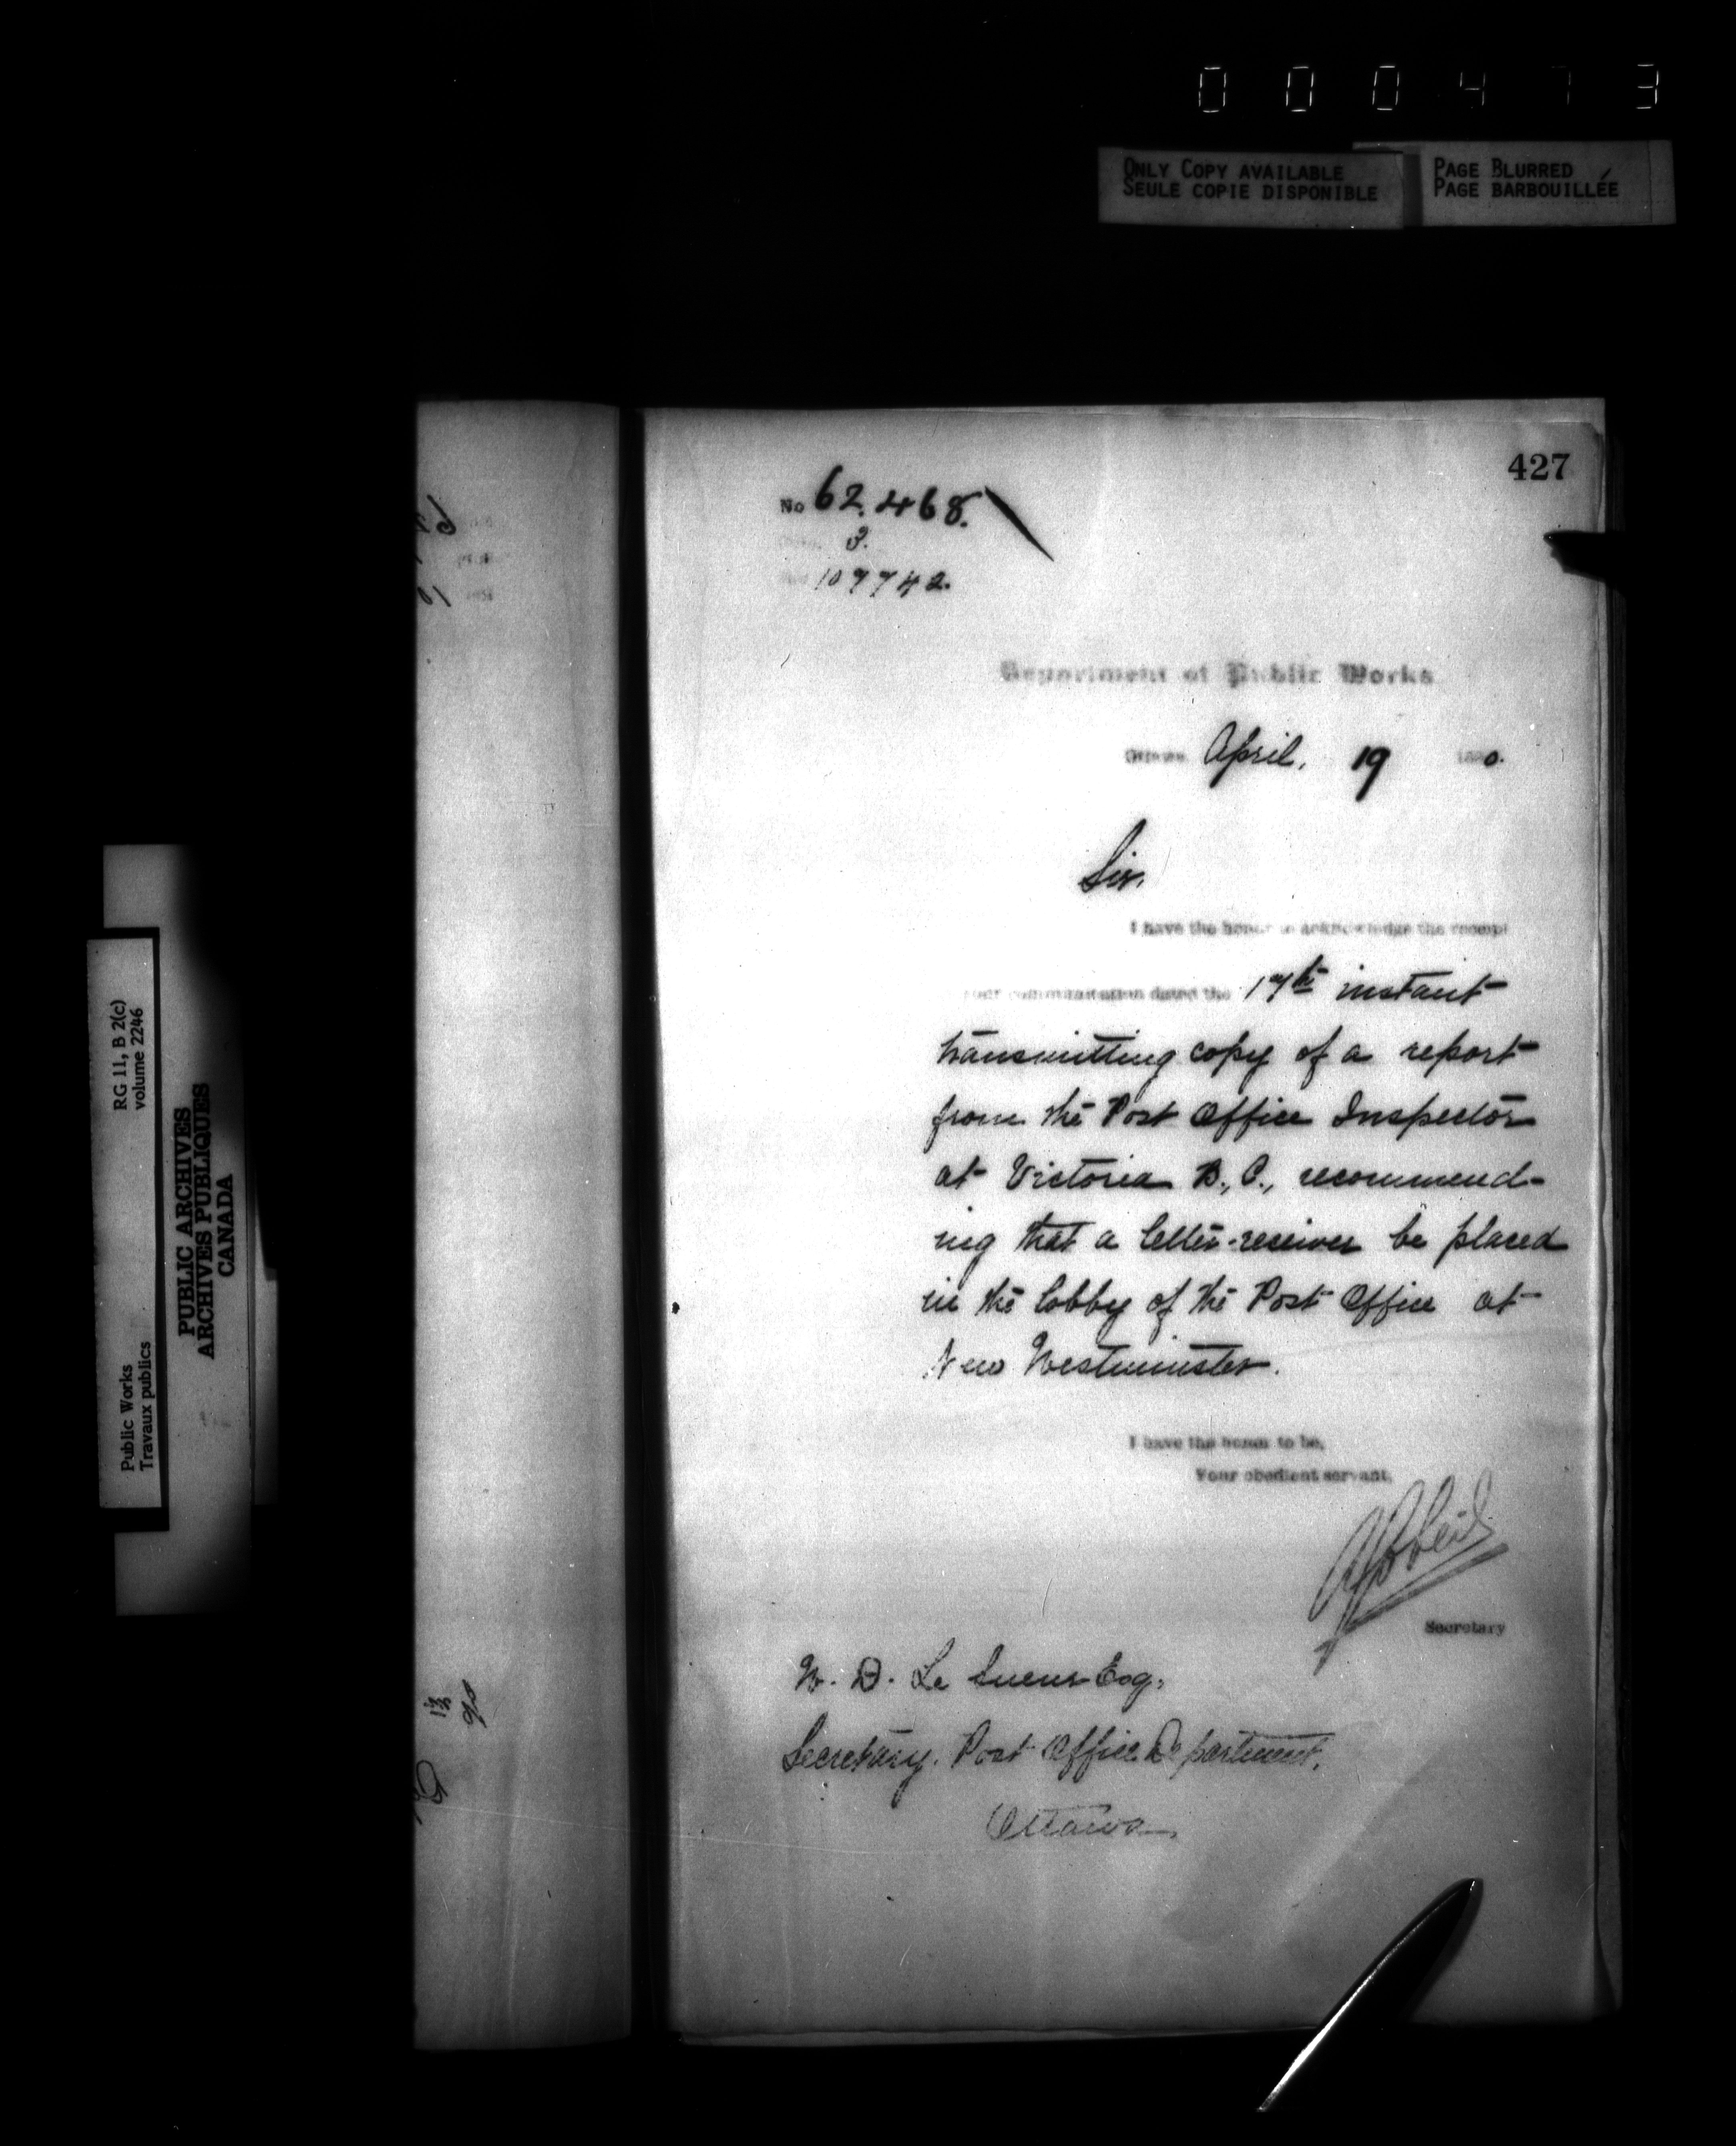 0 0 0 4 7 3
ONLY COPY AVAILABLE
SEULE COPIE DISPONIBLE
PAGE BLURRED
PAGE BARBOUILLÉE
427
No 62.468.
3.
107742.
Department of Public Works
Ottawa April, 19 1890.
Sir,
I have the honor to acknowledge the receipt
your communication dated the 17th instant
transmitting copy of a report
from the Post Office Inspector
at Victoria B., C., recommend-
ing that a letter-receiver be placed
in the lobby of the Post Office at
New Westminster.
I have the honor to be,
Your obedient servant,
Secretary
W. D. Le Sueur Esq,
Secretary. Post Office Department,
Ottawa
RG 11, B 2(c)
volume 2246
Public Works
Travaux publics
PUBLIC ARCHIVES
ARCHIVES PUBLIQUES
CANADA